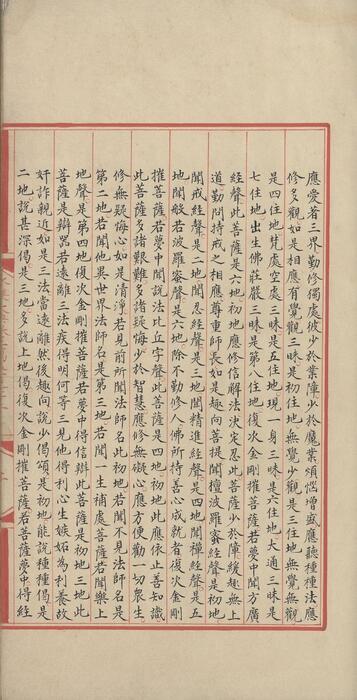 應愛著三界勤修獨處彼少於業障少於魔業煩惱增盛應聽種種法應
修多觀如是相應有覺觀三昧是初住地無覺少觀是三住地無覺無觀
是四住地梵處空處三昧是五住地現一身三昧是六住地大通三昧是
七住地出生佛莊嚴三昧是第八住地復次金剛摧菩薩若夢中聞方廣
經聲此菩薩是六地初地應修信解法決定忍此菩薩少於障緩趣無上
道勤問持戒之相應尊重師長如是趣向菩提聞檀波羅蜜經聲是初地
聞戒經聲是二地聞忍經聲是三地聞精進經聲是四地聞禪經聲是五
地聞般若波羅蜜聲是六地除不勤修人佛所持善心成就者復次金剛
摧菩薩若夢中聞說法比丘字聲此菩薩是四地初地此應依止善知識
此菩薩多諸艱難多諸疑悔少於智慧應修無礙心應方便勸一切衆生
修無疑悔心如是清淨若見前所聞法師名此初地若聞不見法師名是
第二地若聞他異世界法師名是第三地若聞一生補處菩薩若聞樂上
地聲是第四地復次金剛摧菩薩若夢中得信辯此菩薩是初地三地此
菩薩是辯器若遠離三法疾得明何等三見他得利心生嫉妬為利養故
奸詐親近如是三法當遠離然後趣向說少偈頌是初地能說種種偈是
二地說甚深偈是三地多說上地偈復次金剛摧菩薩若菩薩夢中得經